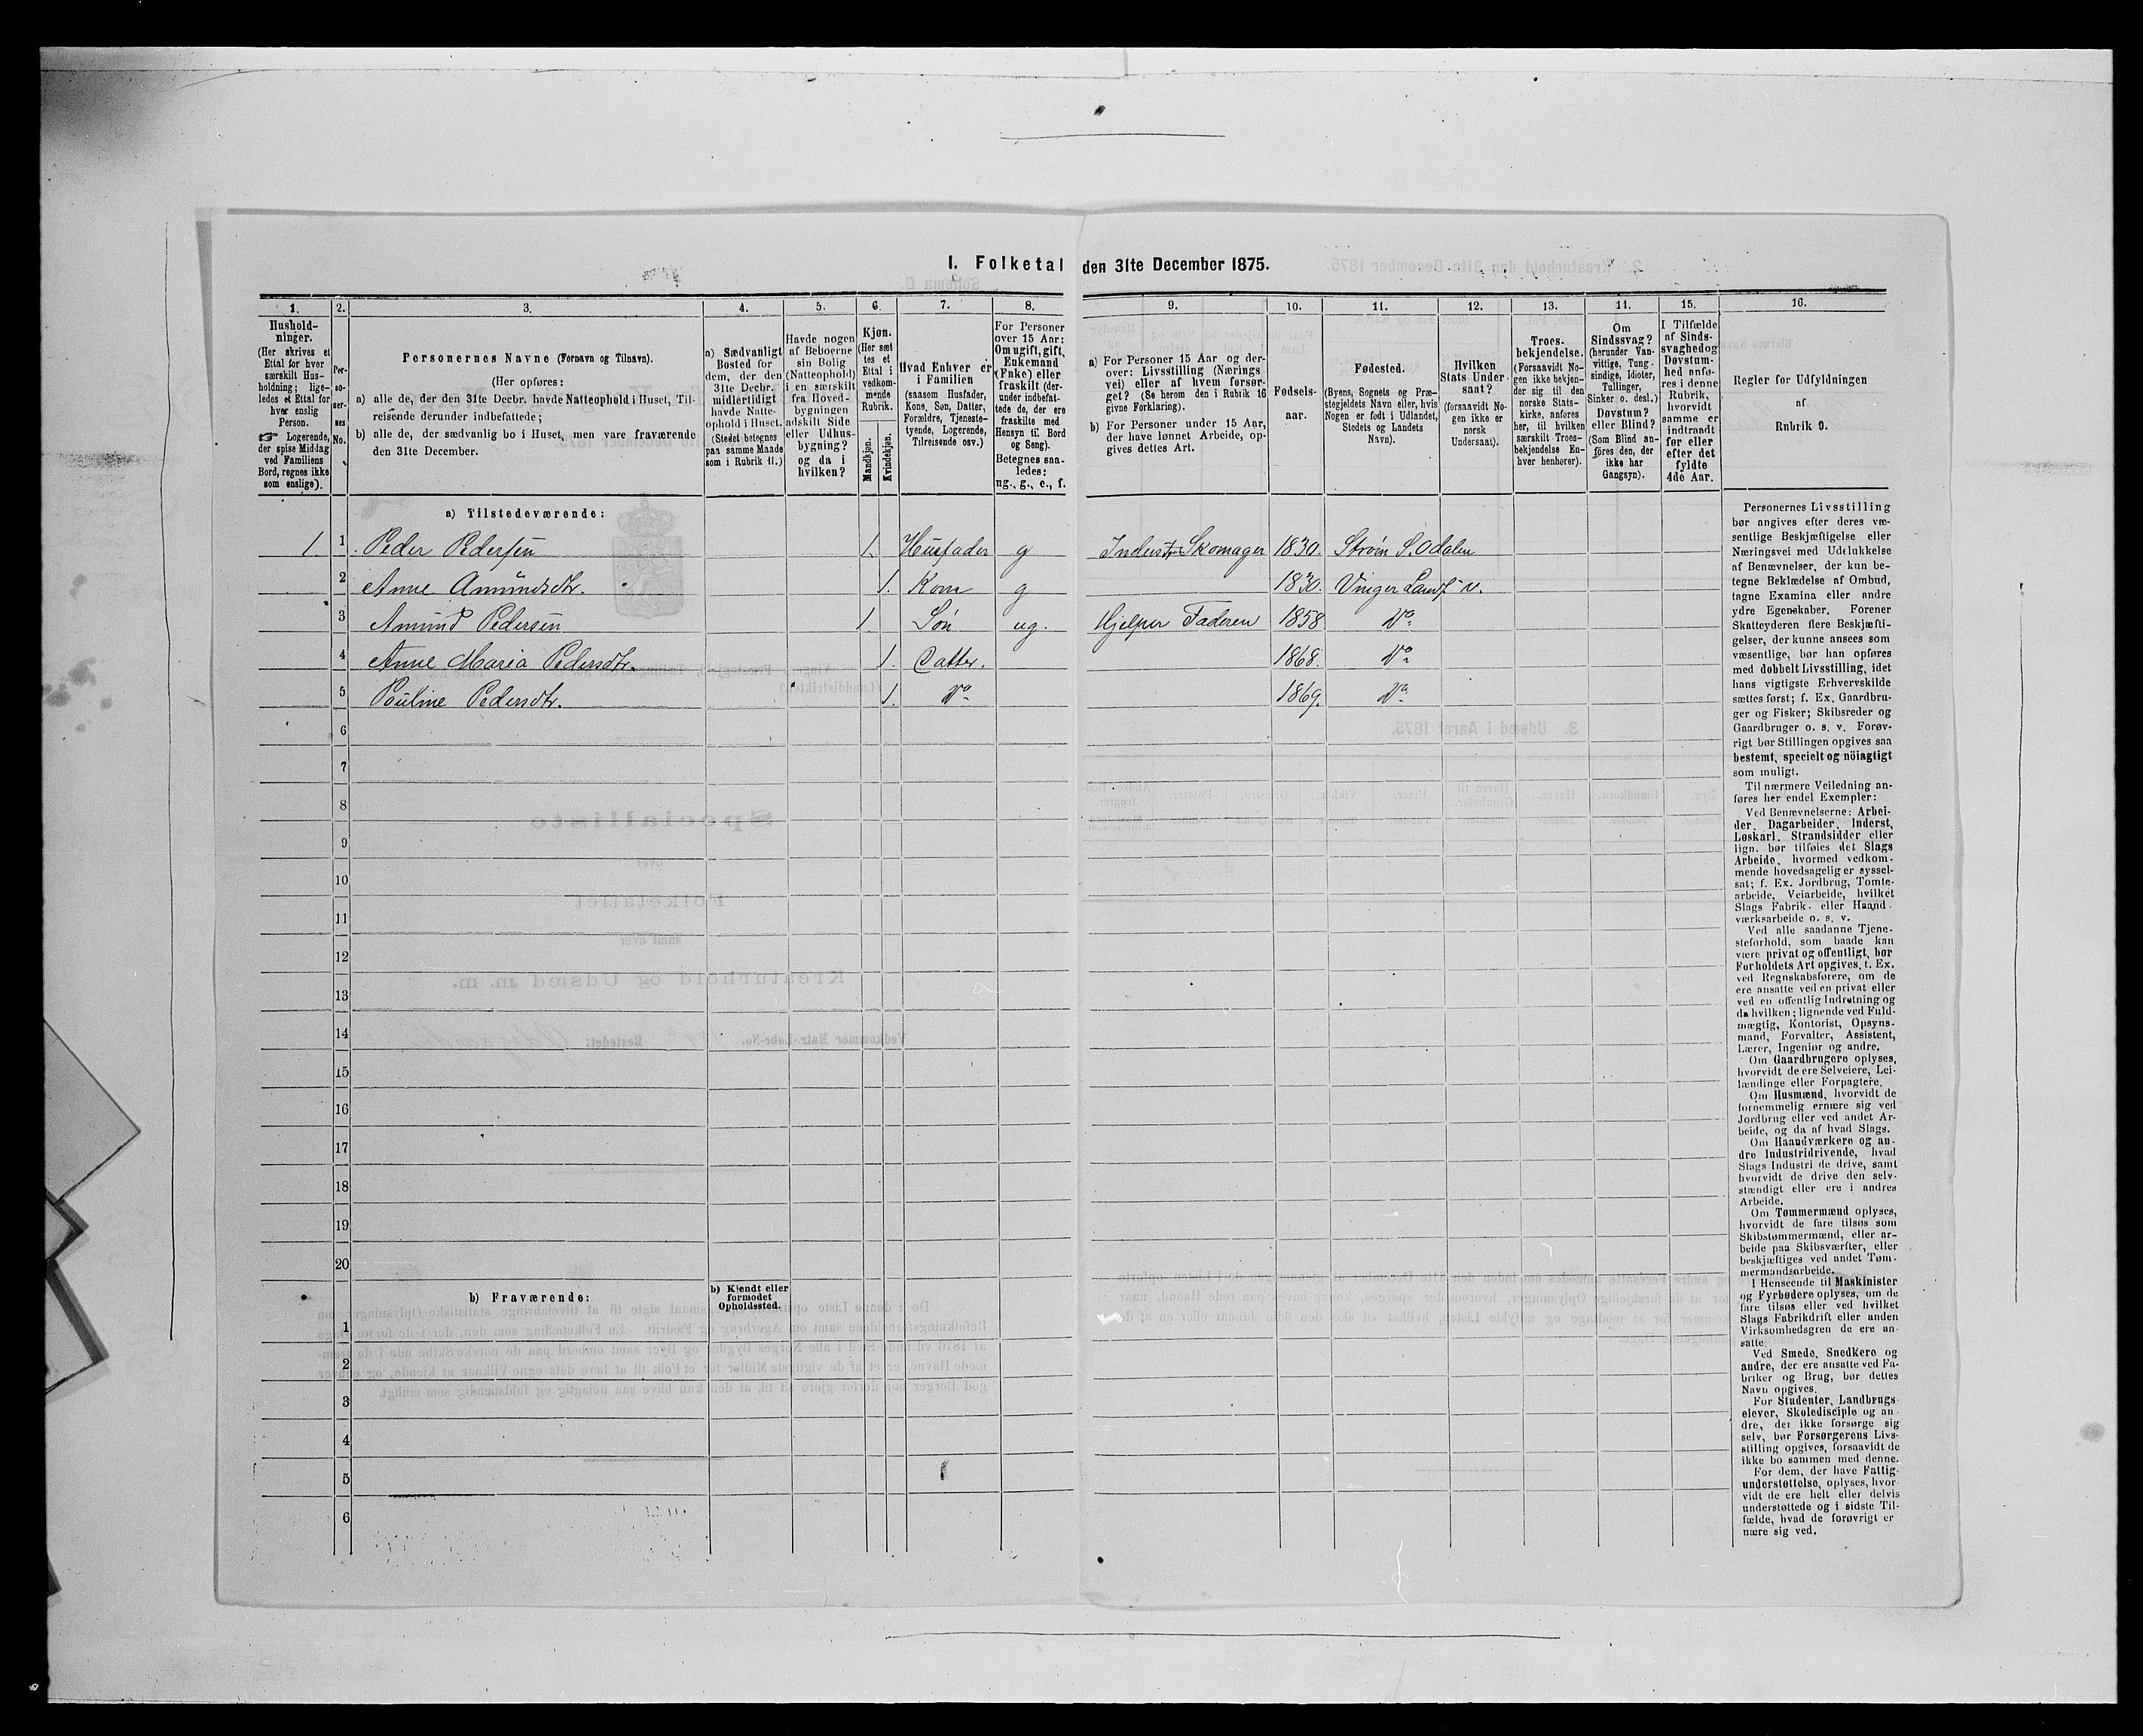 1. Folketal den 31te December 1875.
1. 2. 3. 4. 5. 6. 7. 8. 9. 10. 11. 12. 13. 14. 15. 16.
Hushold-
ninger.
(Her skrives et
Ettal for hver
særskilt Hus-
holdning; lige-
ledes et Ettal for
hver enslig
Person.
☞ Logerende,
der spise Middag
ved Familiens
Bord, regnes ikke
som enslige).
Per-
so-
ner-
nes
No.
Personernes Navne (Fornavn og Tilnavn).
(Her opføres:
a) alle de, der den 31te Decbr. havde Natteophold i Huset, Til-
reisende derunder indbefattede;
b) alle de, der sædvanlig bo i Huset, men vare fraværende
den 31te December.
a) Sædvanligt
Bosted for
dem, der den
31te Decbr.
midlertidigt
havde Natte-
ophold i Huset.
(Stedet betegnes
paa samme Maade
som i Rubrik 11.)
Havde nogen
af Beboerne
sin Bolig
(Natteophold)
i en særskilt
fra Hoved-
bygningen
adskilt Side
eller Udhus-
bygning?
og da i
hvilken?
Kjøn.
(Her sæt
tes et
Ettal i
vedkom-
mende
Rubrik.
Mandkjøn.
Kvindekjøn.
Hvad Enhver er
i Familien
(saasom Husfader,
Kone, Søn, Datter,
Forældre, Tjeneste-
tyende, Logerende,
Tilreisende osv.)
For Personer
over 15 Aar:
Om ugift, gift,
Enkemand
(Enke) eller
fraskilt (der-
under indbefat-
tede de, der ere
fraskilte med
Hensyn til Bord
og Seng).
Betegnes saa-
ledes:
ug., g., e., f.
a) For Personer 15 Aar og der-
over: Livsstilling (Nærings
vei) eller af hvem forsør-
get? (Se herom den i Rubrik 16
givne Forklaring).
b) For Personer under 15 Aar,
der have lønnet Arbeide, op-
gives dettes Art.
Fødsels-
aar.
Fødested.
(Byens, Sognets og Præ-
stegjeldets Navn eller, hvis
Nogen er født i Udlandet,
Stedets og Landets
Navn).
Hvilken
Stats Under
saat?
(forsaavidt No-
gen ikke er
norsk
Undersaat).
Troes-
bekjendelse.
(Forsaavidt No-
gen ikke bekjen-
der sig til den
norske Stats-
kirke, anføres
her, til hvilken
særskilt Troes-
bekjendelse En-
hver henhører).
Om
Sindssvag?
(herunder Van-
vittige, Tung-
sindige, Idioter,
Tullinger,
Sinker o. desl.)
Døvstum?
eller Blind?
(Som Blind an-
føres den, der
ikke har
Gangsyn).
I Tilfælde
af Sinds-
svaghed og
Døvstum-
hed anfø-
res i denne
Rubrik,
hvorvidt
samme er
indtraadt
før eller
efter det
fyldte
4de Aar.
Regler for Udfyldningen
af
Rubrik 9.
a) Tilstedeværende:
1 1 Peder Pedersen 1. Husfader g Inderst Skomager 1830. Strøm S. Odalen
2 Anne Amundsdtr. 1. Kone g 1830. Vinger Landf v.
3 Amund Pedersen 1. Søn ug. Hjelper Faderen 1858 Do
4 Anne Maria Pedersdtr. 1. Datter. 1868. Do
5 Pauline Pedersdtr. 1. Do 1869. Do
6
7
8
9
10
11
12
13
14
15
16
17
18
19
20
b) Fraværende:
b) Kjendt eller
formodet
Opholdssted.
1
2
3
4
5
6
Personernes Livsstilling
bør angives efter deres væ-
sentlige Beskjæftigelse eller
Næringsvei med Udelukkelse
af Benævnelser, der kun be-
tegne Beklædelse af Ombud,
tagne Examina eller andre
ydre Egenskaber. Forener
Skatteyderen flere Beskjæfti-
gelser, der kunne ansees som
væsentlige, bør han opføres
med dobbelt Livsstilling, idet
hans vigtigste Erhvervskilde
sættes først; f. Ex. Gaardbru-
ger og Fisker; Skibsreder og
Gaardbruger o. s. v. Forøv-
rigt bør Stillingen opgives saa
bestemt, specielt og nöiagtigt
som muligt.
Til nærmere Veiledning an-
føres her endel Exempler:
Ved Benævnelserne: Arbei-
der, Dagarbeider, Inderst,
Løskarl, Strandsidder eller
lign. bør tilføies det Slags
Arbeide, hvormed vedkom-
mende hovedsagelig er syssel-
sat; f. Ex. Jordbrug, Tomte-
arbeide, Veiarbeide, hvilket
Slags Fabrik- eller Haand-
værksarbeide o. s. v.
Ved alle saadanne Tjene-
steforhold, som baade kan
være privat og offentligt, bør
Forholdets Art opgives, t. Ex.
ved Regnskabsførere, om de
ere ansatte ved en privat eller
ved en offentlig Indretning og
da hvilken; lignende ved Fuld-
mægtig, Kontorist, Opsyns-
mand, Forvalter, Assistent,
Lærer, Ingeniør og andre.
Om Gaardbrugere oplyses,
hvorvidt de ere Selveiere, Lei-
lændinge eller Forpagtere.
Om Husmænd, hvorvidt de
fornemmelig ernære sig ved
Jordbrug eller ved andet Ar-
beide, og da af hvad Slags.
Om Haandværkere og an-
dre Industridrivende, hvad
Slags Industri de drive, samt
hvorvidt de drive den selv-
stændigt eller ere i andres
Arbeide.
Om Tømmermænd oplyses,
hvorvidt de fare tilsøs som
Skibstømmermænd, eller ar-
beide paa Skibsværfter, eller
beskjæftiges ved andet Tøm-
mermandsarbeide.
I Henseende til Maskinister
og Fyrbødere oplyses, om de
fare tilsøs eller ved hvilket
Slags Fabrikdrift eller anden
Virksomhedsgren de ere an-
satte.
Ved Smede, Snedkere og
andre, der ere ansatte ved Fa-
briker og Brug, bør dettes
Navn opgives.
For Studenter, Landbrugs-
elever, Skoledisciple og an-
dre, der ikke forsørge sig
selv, bør Forsørgerens Livs-
stilling opgives, forsaavidt de
ikke bo sammen med denne.
For dem, der have Fattig-
understøttelse, oplyses, hvor-
vidt de ere helt eller delvis
understøttede og i sidste Til-
fælde, hvad de forøvrigt er
nære sig ved.